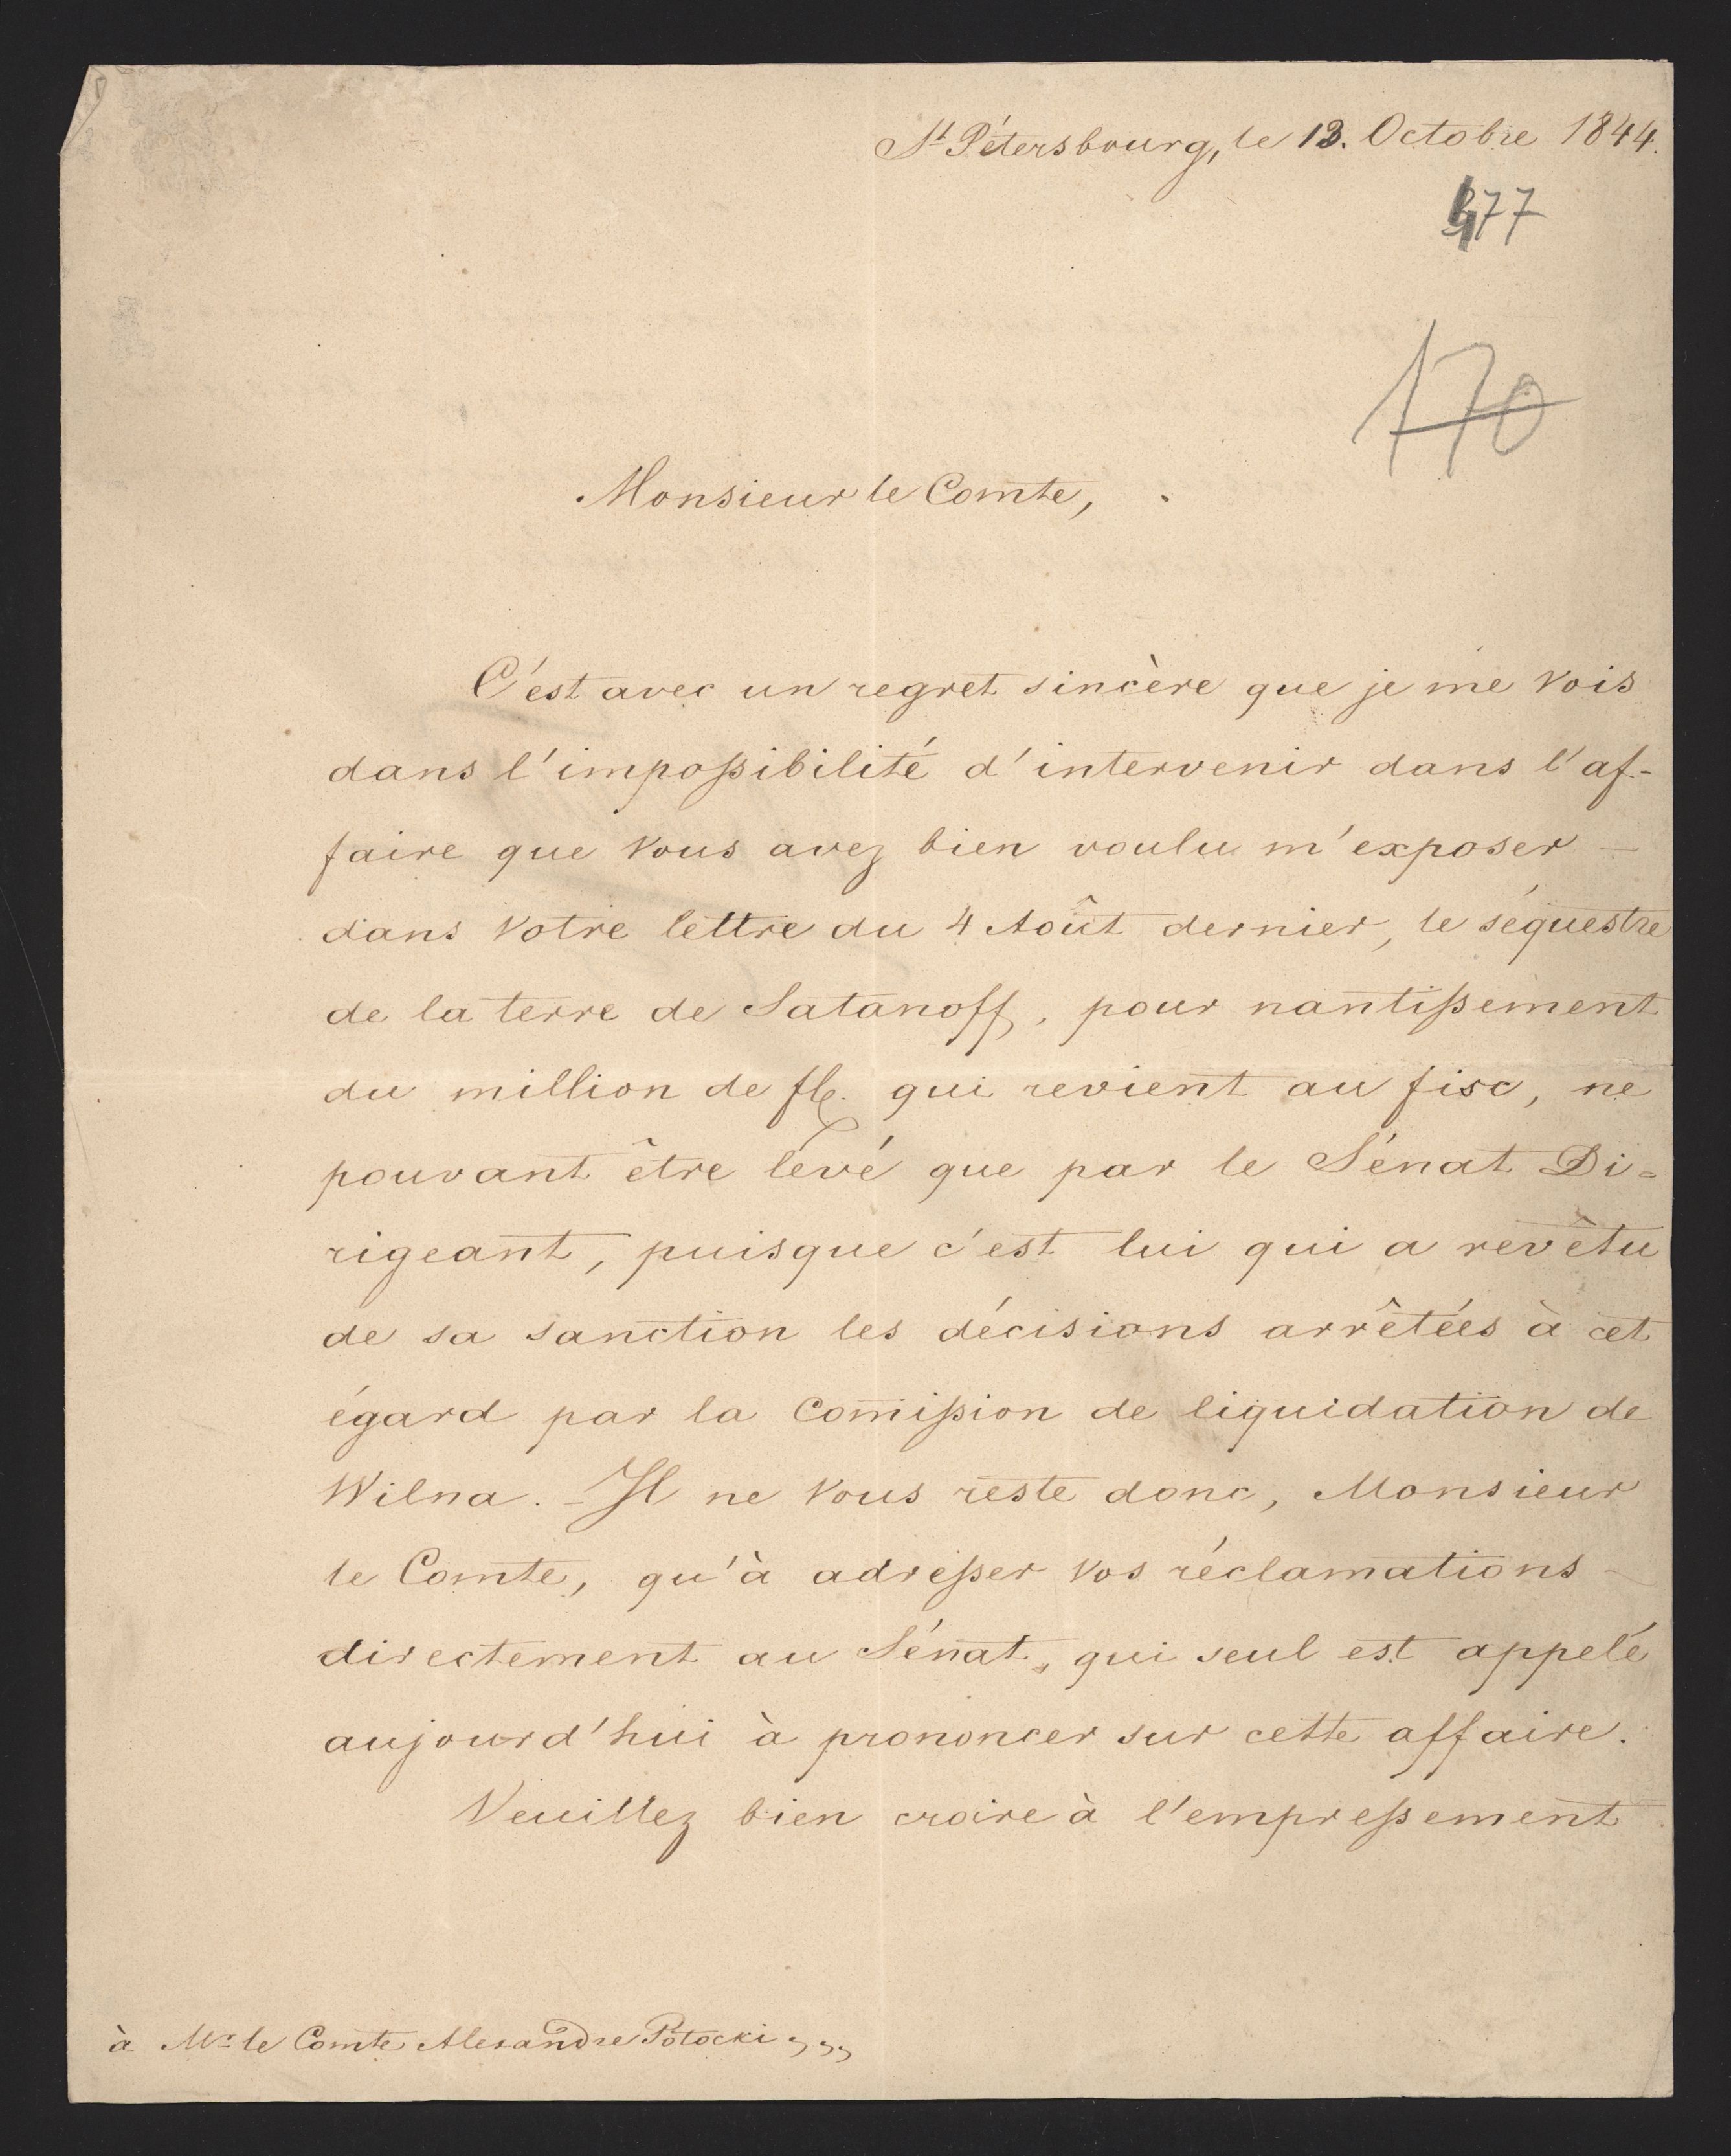 St Pétersbourg, le 13. Octobre 1844.
477
170
Monsieur le Comte,
C'est avec un regret sincère que je me vois
dans l'impossibilité d'intervenir dans l'af-
faire que Vous avez bien voulu m'exposer
dans Votre lettre du 4 Août dernier, le séquestre
de la terre de Satanoff, pour nantissement
du million de fl. qui revient au fisc, ne
pouvant être levé que par le Sénat Di=
rigeant, puisque c'est lui qui a revêtu
de sa sanction les décisions arrêtées à cet
égard par la Com̅ission de liquidation de
Wilna. - Il ne Vous reste donc, Monsieur
le Comte, qu'à adresser Vos réclamations
directement au Sénat, qui seul est appelé
aujourd'hui à prononcer sur cette affaire.
Veuillez bien croire à l'empressement
à Mr le Comte Alexandre Potocki